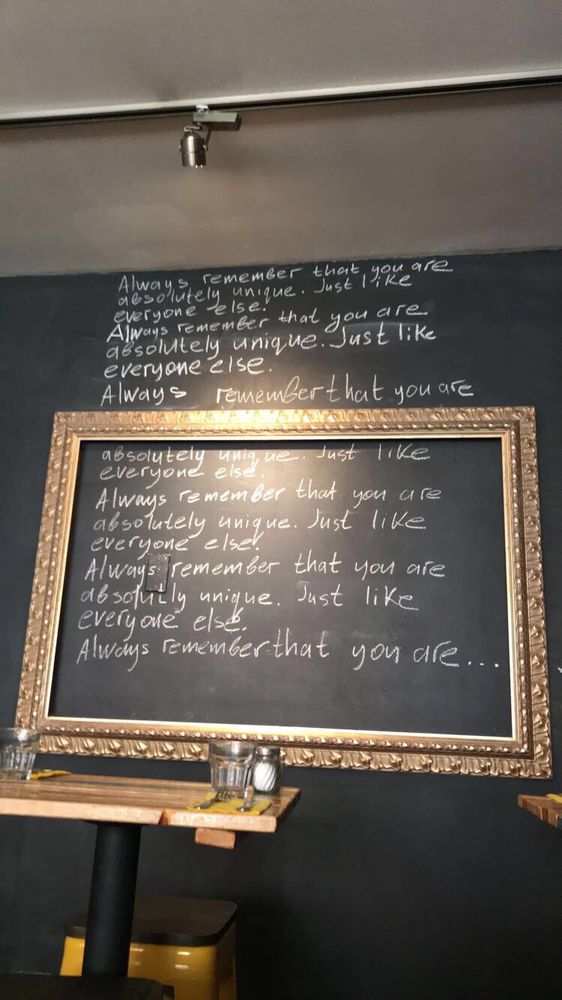 Always remember that you are
absolutely unique. Just like
everyone else.
Always remember that you are
absolutely unique. Just like
everyone else.
Always remember that you are
absolutely unique. Just like
everyone else.
Always remember that you are
absolutely unique. Just like
everyone else.
Always remember that you are
absolutely unique. Just like
everyone else.
Always remember that you are...